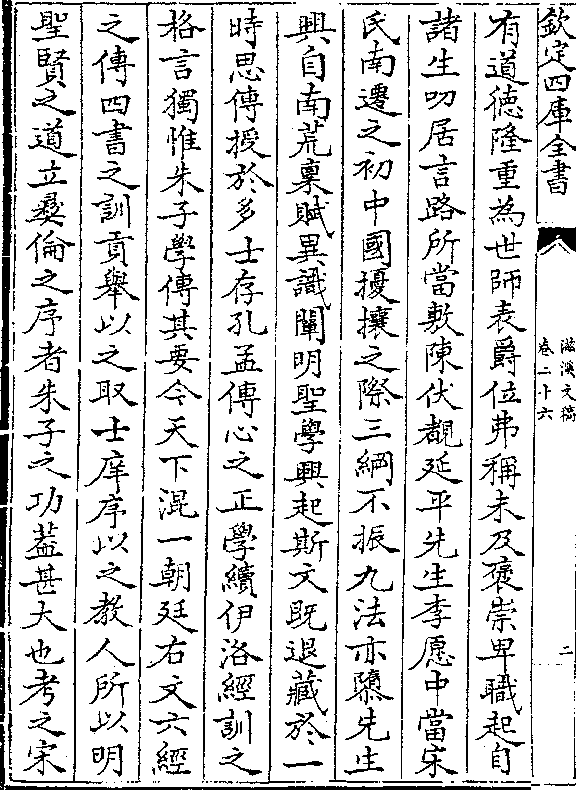 欽定四庫全書
滋溪文稿
卷二十六
二
有道德隆重為世師表爵位弗稱未及褒崇卑職起自
諸生叨居言路所當敷陳伏覩延平先生李愿中當宋
氏南遷之初中國擾攘之際三綱不振九法亦隳先生
興自南荒稟賦異識闡明聖學興起斯文既退藏於一
時思傳授於多士存孔孟傳心之正學續伊洛經訓之
格言獨惟朱子學傳其要今天下混一朝廷右文六經
之傳四書之訓貢舉以之取士庠序以之教人所以明
聖賢之道立彞倫之序者朱子之功葢甚大也考之宋